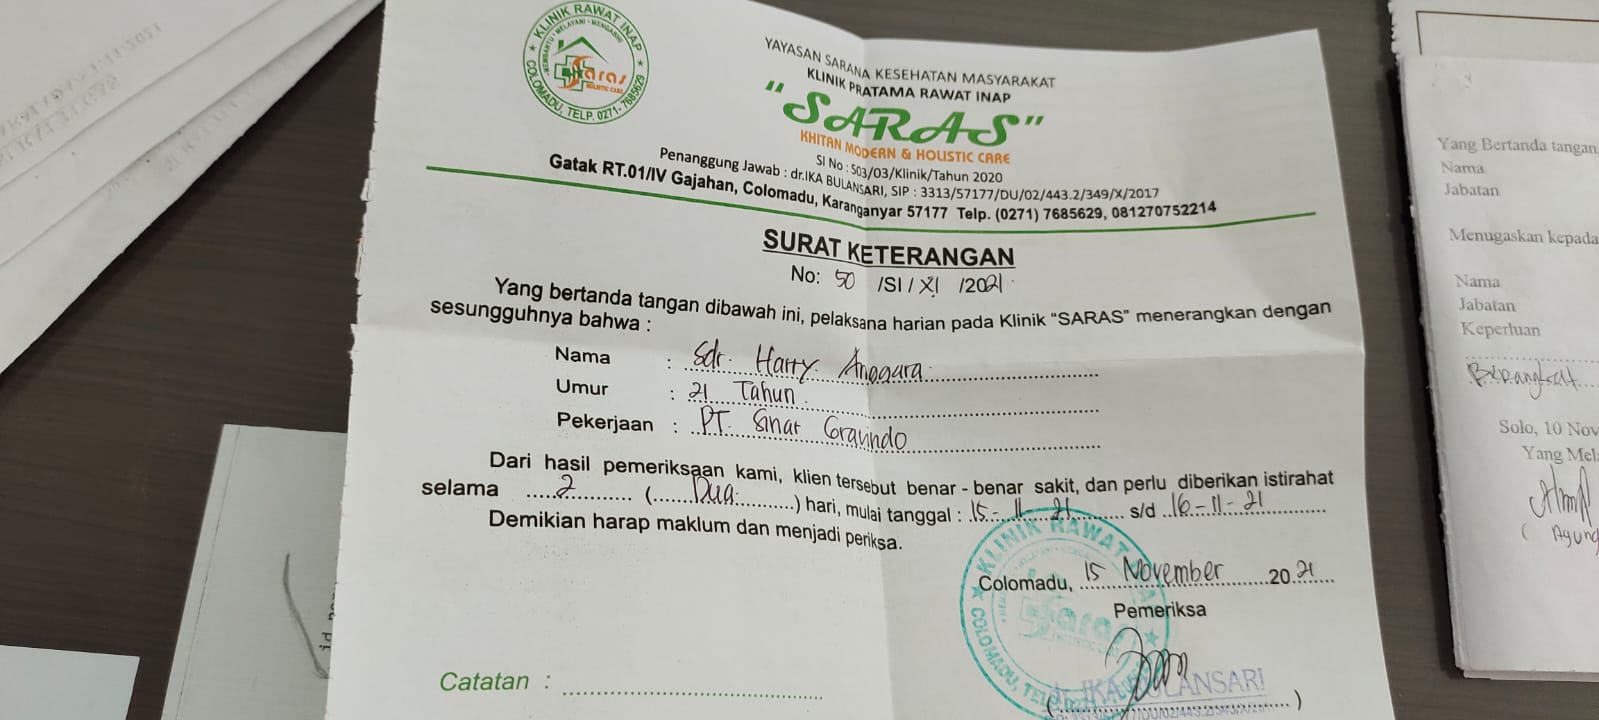 KLINIK RAWAT INAP
MEMBANTU - MELAYANI - MENGABDI
Saras
HOLISTIC CARE
COLOMADU, TELP. 0271-7685629
YAYASAN SARANA KESEHATAN MASYARAKAT
KLINIK PRATAMA RAWAT INAP
"SARAS"
KHITAN MODERN & HOLISTIC CARE
SI No : 503/03/Klinik/Tahun 2020
Penanggung Jawab : dr.IKA BULANSARI, SIP : 3313/57177/DU/02/443.2/349/X/2017
Gatak RT.01/IV Gajahan, Colomadu, Karanganyar 57177 Telp. (0271) 7685629, 081270752214
SURAT KETERANGAN
No: 50 /SI/ XI /2021
Yang bertanda tangan dibawah ini, pelaksana harian pada Klinik "SARAS" menerangkan dengan
sesungguhnya bahwa :
Nama : Sdr. Harry Anggara
Umur : 21 Tahun
Pekerjaan : PT. Sinar Gravindo
Dari hasil pemeriksaan kami, klien tersebut benar - benar sakit, dan perlu diberikan istirahat
selama 2 (Dua) hari, mulai tanggal : 15-11-21 s/d 16-11-21
Demikian harap maklum dan menjadi periksa.
Colomadu, 15 November 2021
Pemeriksa
KLINIK RAWAT
Saras
COLOMADU, TEL
dr. IKA BULANSARI
Catatan :
Yang Bertanda tangan
Nama
Jabatan
Menugaskan kepada
Nama
Jabatan
Keperluan
Berangkat
Solo, 10 Nov
Yang Mel
( Agung